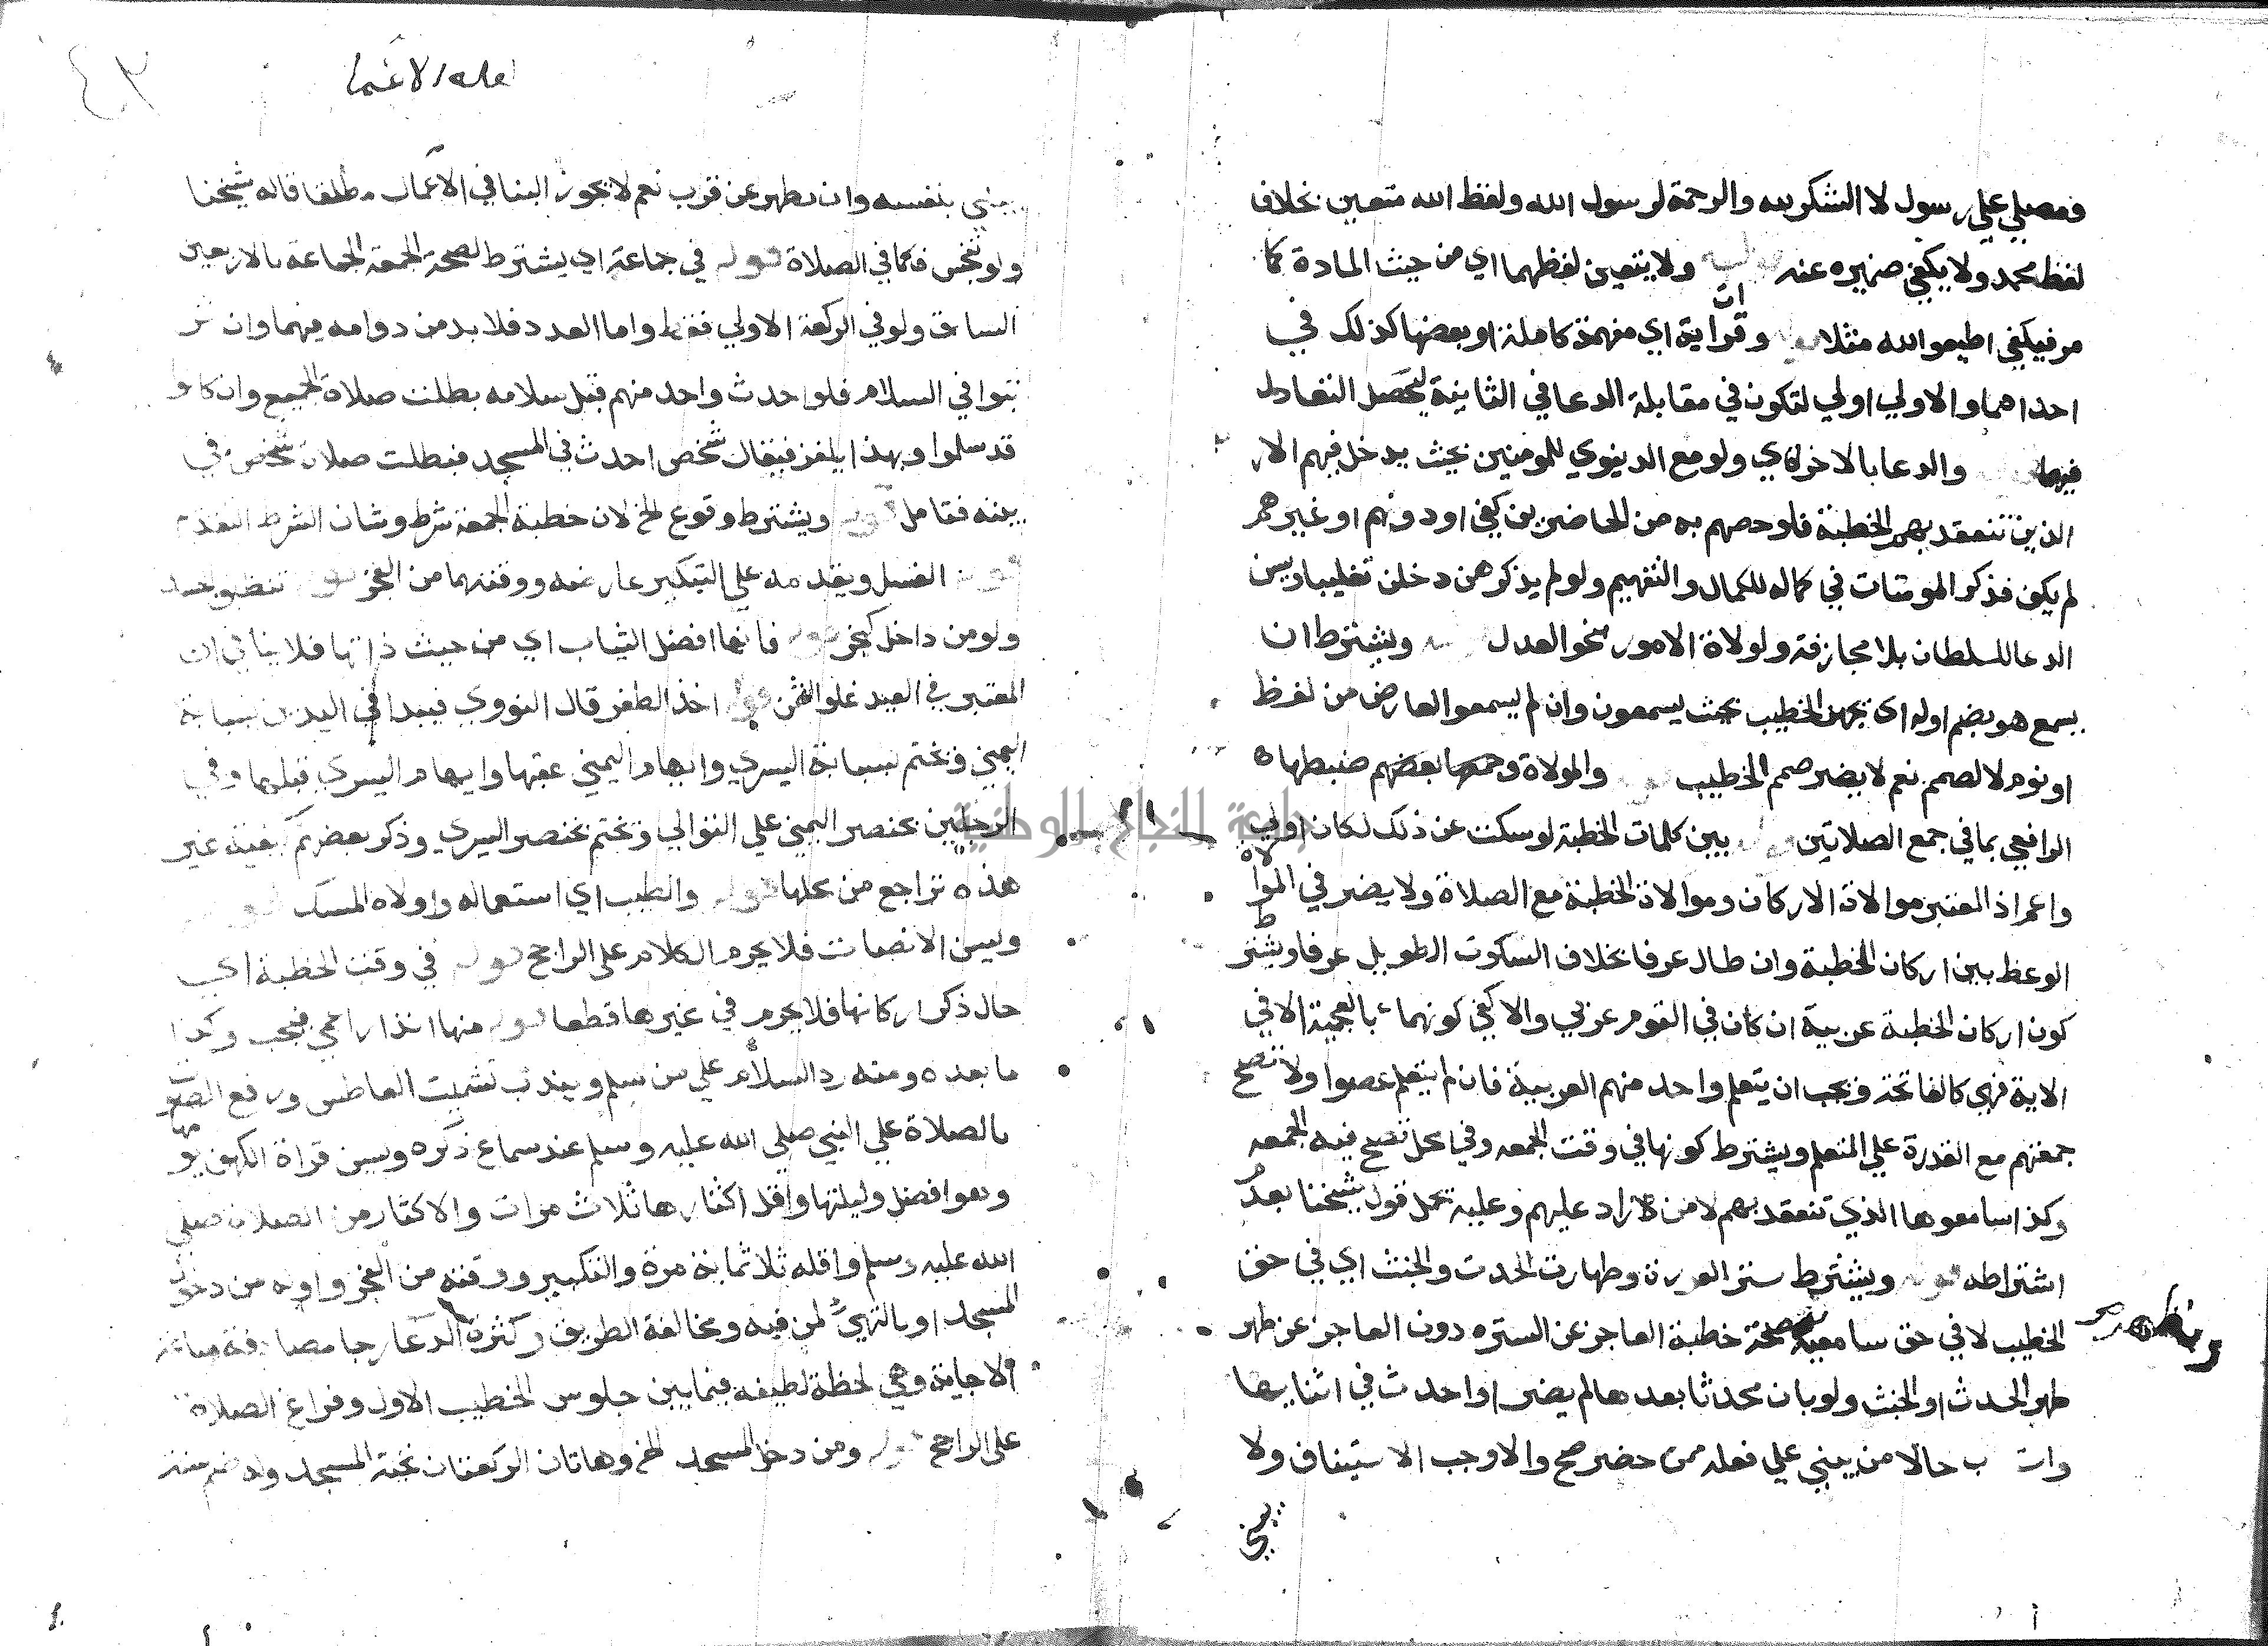 فمصلي علي رسول لا الشكر لله والرحمة لرسول الله ولفظ الله متعين بخلاف
لفظ محمد ولا يكفي ضميره عنه قوله ولا يتعين لفظهما اي من حيث المادة كما
مر فيكفي اطيعوا الله مثلا قوله وقراية اي مفهمة كاملة او بعضها كذلك في
احداهما والاولي اولي لتكون في مقابلة الدعا في الثانية ليحصل التعادل
فيهما قوله والدعا بالاخراوي ولو مع الدنيوي للمومنين بحيث يدخل فيهم الار
الذين تنعقد بهم الخطبة فلو خصهم به من الحاضرين كفي او دونهم او غيرهم
لم يكف فذكر المومنات في كماله للكمال والتفهيم ولو لم يذكرهن دخلن تغليبا ويسن
الدعا للسلطان بلا مجازفة ولولاة الامور بنحو العدل قوله ويشترط ان
يسمع هو بضم اوله اي يجهر الخطيب بحيث يسمعون وان لم يسمعوا لعارض من لغط
او نوم لا لصمم نعم لا يضر صمم الخطيب قوله والمولاة وجمعها بعضهم ضبطها ه
الرافعي بما في جمع الصلاتين قوله بين كلمات الخطبة لو سكت عن ذلك لكان اولي
واعم اذ المعتبر موالاة الاركان وموالاة الخطبة مع الصلاة ولا يضر في الموالاة
الوعظ بين اركان الخطبة وان طال عرفا بخلاف السكوت الطويل عرفا ويشترط
كون اركان الخطبة عربية ان كان في القوم عربي والا كفي كونها بالعجمية الا في
الاية فهي كالفاتحة ويجب ان يتعلم واحد منهم العربية فان لم يتعلم عصوا ولا تصح
جمعتهم مع القدرة علي التعلم ويشترط كونها في وقت الجمعه وفي محل تصح فيه الجمعه
وكذا سامعوها الذي تنعقد بهم لا من زاد عليهم وعليه يحمل قول شيخنا بعدم
اشتراطه قوله ويشترط ستر العورة وطهارت الحدث والخبث اي في حق
الخطيب لا في حق سامعيه صحة خطبة العاجز عن الستره دون العاجز عن طهر
طهر الحدث او الخبث ولو بان محدثا بعدها لم يضر او احدث في اثنايها
حالا من يبني علي فعله ممن حضر صح والاوجب الاستيناف ولا
يبني
٤٣
يبني بنفسه وان تطهر عن قرب نعم لا يجوز البنا في الاغمات مطلقا قاله شيخنا
ولو تنجس فكما في الصلاة قوله في جماعة اي يشترط لصحة الجمعة الجماعة بالاربعين
السابق ولو في الركعة الاولي فقط واما العدد فلا بد من دوامه فيهما وان
نتوا في السلام فلو احدث واحد منهم قبل سلامه بطلت صلاة الجميع وان كانو
قد سلموا وبهذا يلغز فيقال شخص احدث في المسجد فبطلت صلاة شخص في
بيته فتامل قوله ويشترط وقوع الخ لان خطبة الجمعة شرط وشان الشرط التقدم
قوله الغسل ويقدمه علي التبكير عارضه ووقتهما من الفجر قوله تنظيف جسد
ولو من داخل كبخر قوله فانها افضل الثياب اي من حيث ذاتها فلا ينافي ان
المعتبر في العيد غلو الثمن قوله اخذ الظفر قال النووي فيبدا في اليدين بسبابة
اليمني ويختم بسبابة اليسري وابهام اليمني عقبها وابهام اليسري قبلها وفي
الرجلين بخنصر اليمني علي التوالي ويختم بخنصر اليسري وذكر بعضهم كيفية غير
هذه تراجع من محلها قوله والطيب اي استعماله واولاه المسك قوله
ويسن الانصات فلا يحرم الكلام علي الراجح قوله في وقت الخطبة اي
حال ذكر اركانها فلا يحرم في غيرها قطعا قوله منها انذار اعمي فيجب وكذا
ما بعده ومنه رد السلام علي من سلم ويندب تشميت العاطس ورفع الصوت
بالصلاة علي النبي صلي الله عليه وسلم عند سماع ذكره ويسن قراة الكهف يومها
وهو افضل وليلتها واقل اكثارها ثلاث مرات والاكثار من الصلاة صلي
الله عليه وسلم واقله ثلاثماية مرة والتكبير ووقته من الفجر واوله من دخول
المسجد او بالتهيئ لمن فيه ومخالفة الطريق وكثرة الدعا رجا مصادفة ساعة
الاجابة وهي لحظة لطيفه فيما بين جلوس الخطيب الاول وفراغ الصلاة
علي الراجح قوله ومن دخل المسجد الخ وهاتان الركعتان تحية المسجد